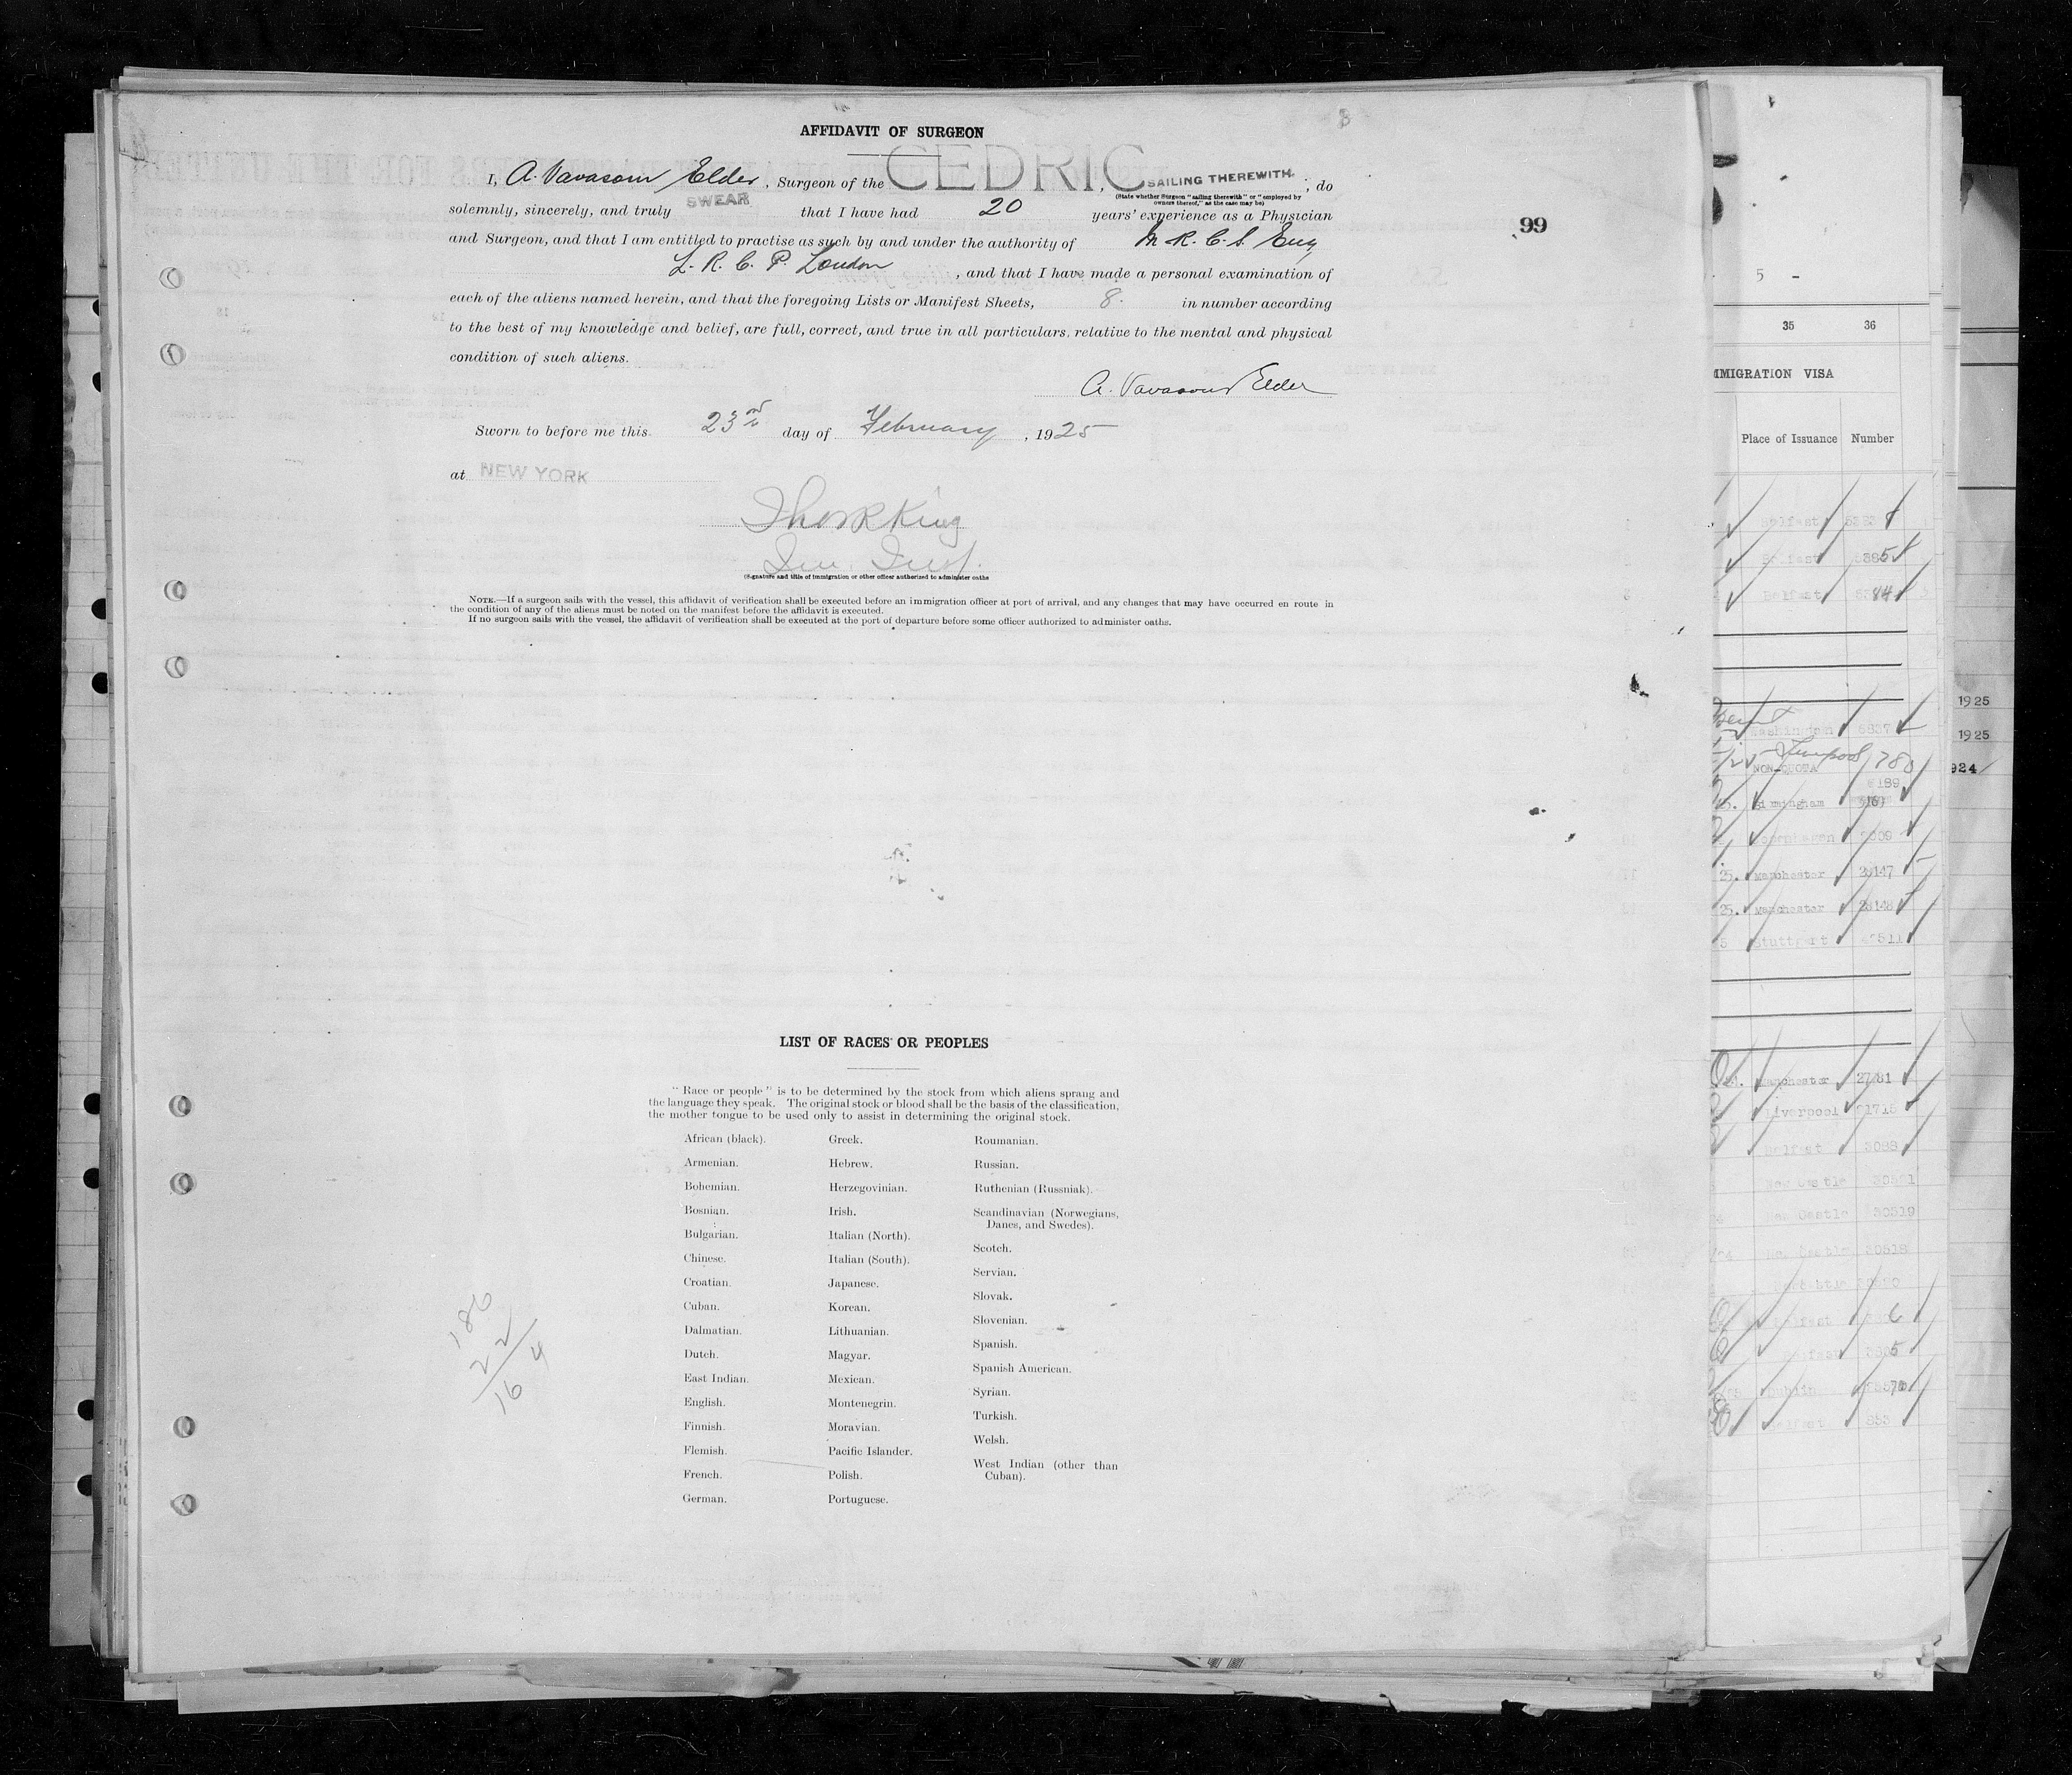 AFFIDAVIT OF SURGEON
I, A. Vavasour Elder, Surgeon of the CEDRIC, SAILING THEREWITH, do
(State whether Surgeon "sailing therewith" or "employed by
owners thereof," as the case may be)
solemnly, sincerely, and truly SWEAR that I have had 20 years' experience as a Physician
and Surgeon, and that I am entitled to practise as such by and under the authority of M.R.C.S. Eng
L.R.C.P. London, and that I have made a personal examination of
each of the aliens named herein, and that the foregoing Lists or Manifest Sheets, 8. in number according
to the best of my knowledge and belief, are full, correct, and true in all particulars. relative to the mental and physical
condition of such aliens.
A. Vavasour Elder
Sworn to before me this 23rd day of February, 1925
at NEW YORK
King
(Signature and title of immigration or other officer authorized to administer oaths
NOTE.—If a surgeon sails with the vessel, this affidavit of verification shall be executed before an immigration officer at port of arrival, and any changes that may have occurred en route in
the condition of any of the aliens must be noted on the manifest before the affidavit is executed.
If no surgeon sails with the vessel, the affidavit of verification shall be executed at the port of departure before some officer authorized to administer oaths.
99
LIST OF RACES OR PEOPLES
"Race or people" is to be determined by the stock from which aliens sprang and
the language they speak. The original stock or blood shall be the basis of the classification,
the mother tongue to be used only to assist in determining the original stock.
African (black).
Armenian.
Bohemian.
Bosnian.
Bulgarian.
Chinese.
Croatian.
Cuban.
Dalmatian.
Dutch.
East Indian.
English.
Finnish.
Flemish.
French.
German.
Greek.
Hebrew.
Herzegovinian.
Irish.
Italian (North).
Italian (South).
Japanese.
Korean.
Lithuanian.
Magyar.
Mexican.
Montenegrin.
Moravian.
Pacific Islander.
Polish.
Portuguese.
Roumanian.
Russian.
Ruthenian (Russniak).
Scandinavian (Norwegians,
Danes, and Swedes).
Scotch.
Servian.
Slovak.
Slovenian.
Spanish.
Spanish American.
Syrian.
Turkish.
Welsh.
West Indian (other than
Cuban).
186
22
164
5 -
35 36
IMMIGRATION VISA
Place of Issuance Number
Belfast
Belfast
Belfast
Washington 6837
Liverpool 780
NON-QUOTA
189
Birmingham
Copenhagen
25. Manchester 28147
25. Manchester 28148
Stuttgart
Manchester 2781
Liverpool 31715
Belfast 3088
New Castle
New Castle 30519
New Castle 30518
Belfast
Belfast
Dublin
Belfast 853
1925
1925
924